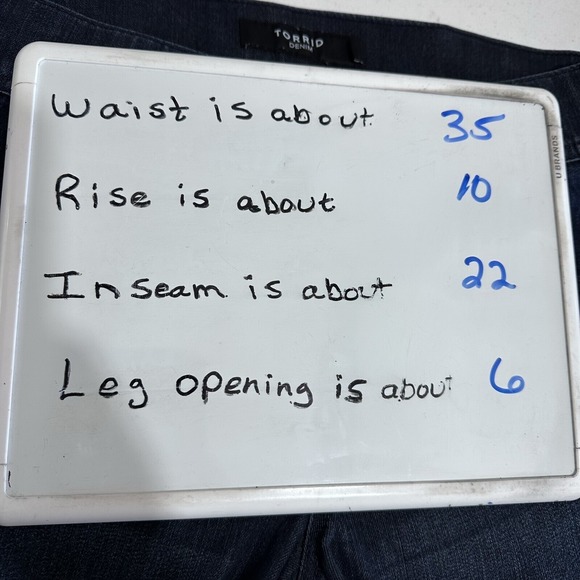 TORRID
DENIM
Waist is about 35
U BRANDS
Rise is about 10
Inseam is about 22
Leg opening is about 6